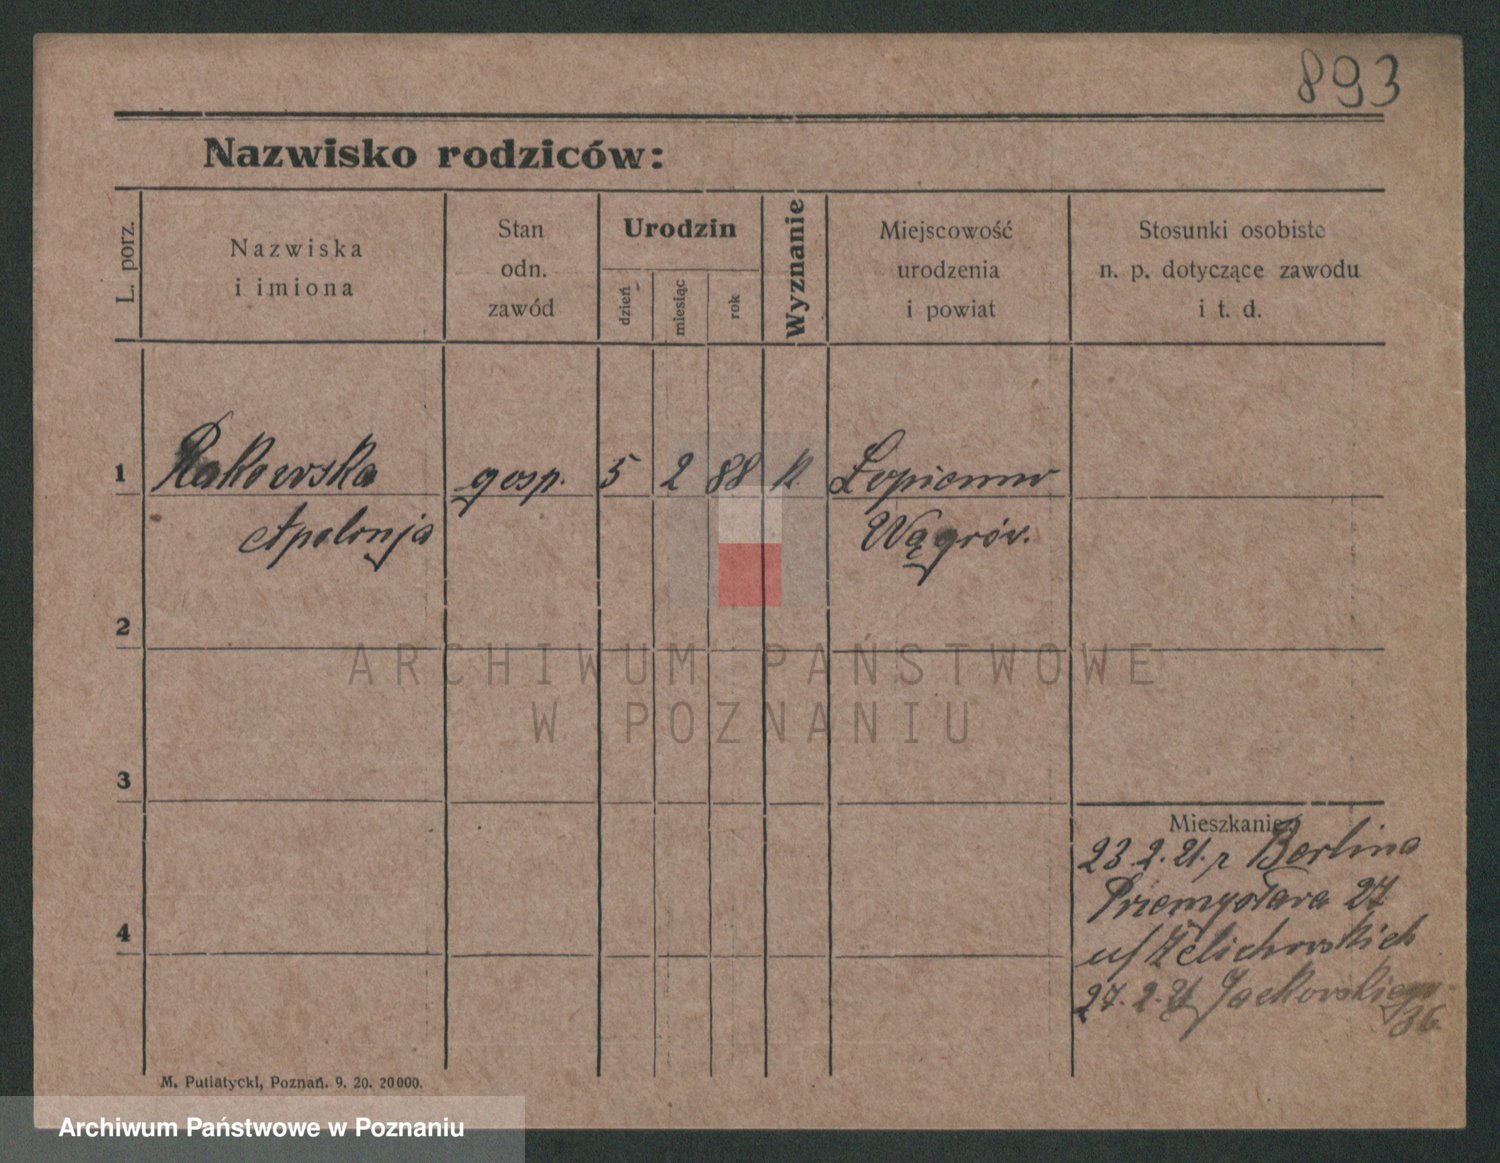 893
Nazwisko rodziców:
L. porz.
Nazwiska
i imiona
Stan
odn.
zawód
Urodzin
dzień
miesiąc
rok
Wyznanie
Miejscowość
urodzenia
i powiat
Stosunki osobiste
n. p. dotyczące zawodu
i t. d.
1 Rakowska gosp. 5 2 88 k. Łopienno
Apolonja Wągrów.
2
ARCHIWUM PAŃSTWOWE
W POZNANIU
3
Mieszkanie:
23 2. 21. z Berlina
Przemysława 27
4
u/Zelichowskich
27. 2. 21 Jackowskiego
36
M. Putiatycki, Poznań. 9. 20. 20000.
Archiwum Państwowe w Poznaniu